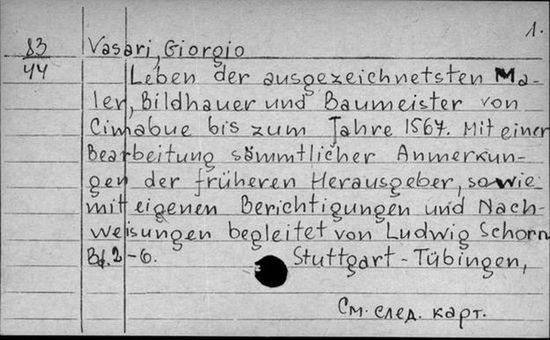 1.
83
44
Vasari, Giorgio
Leben der ausgezeichnetsten Ma-
ler, Bildhauer und Baumeister von
Cimabue bis zum Jahre 1567. Mit einer
Bearbeitung sämmtlicher Anmerkun-
gen der früheren Herausgeber, sowie
mit eigenen Berichtigungen und Nach-
weisungen begleitet von Ludwig Schorn
Bd. 2-6. Stuttgart-Tübingen,
См. след. карт.